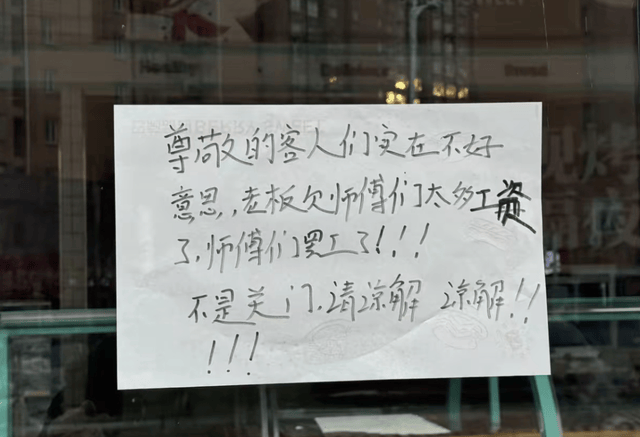 尊敬的客人们实在不好
意思,老板欠师傅们太多工资
了,师傅们罢工了!!!
不是关门,请凉解 凉解!!
!!!